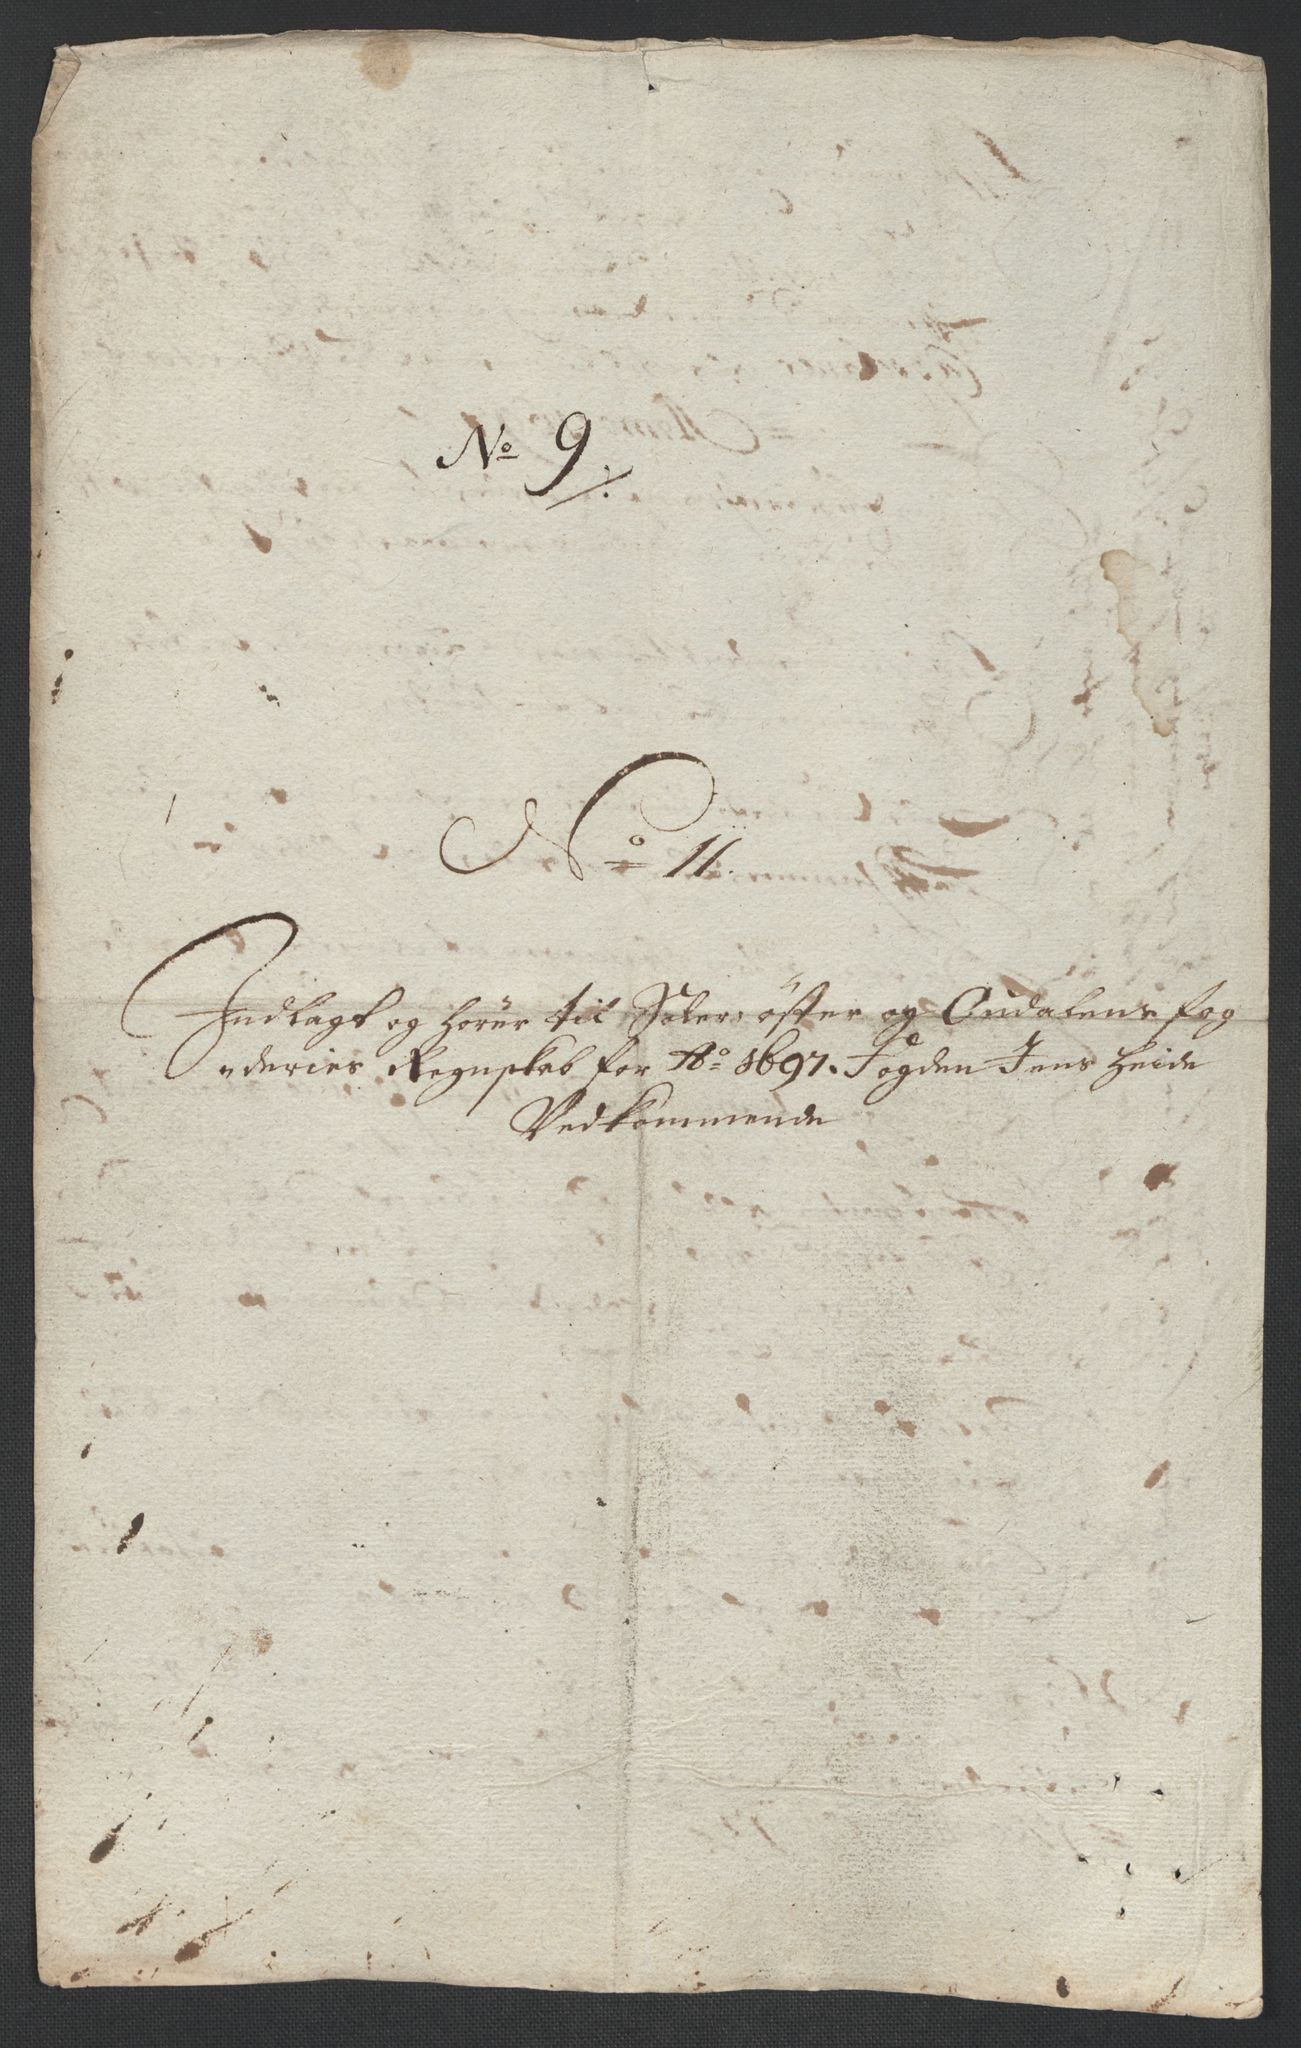 No 9
No 11.
Indlagt og hörer til Soler: öster og Oudalens fog
deries Regnskab for Ao 1697. Fogden Jens Heide
Vedkommende